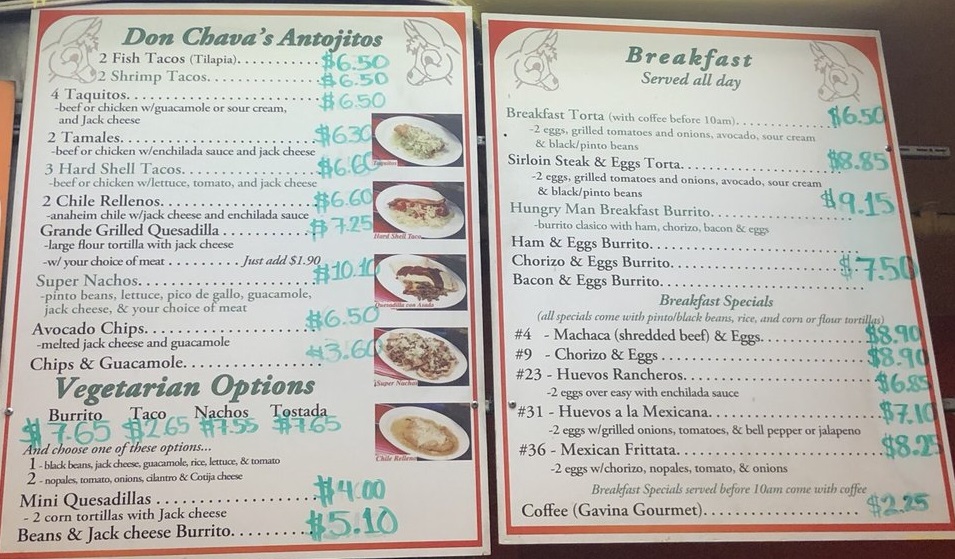 Don Chava's Antojitos
2 Fish Tacos (Tilapia). $6.50
2 Shrimp Tacos. $6.50
4 Taquitos. $6.50
-beef or chicken w/guacamole or sour cream,
and Jack cheese
2 Tamales. $6.30
-beef or chicken w/enchilada sauce and jack cheese
3 Hard Shell Tacos. $6.60
-beef or chicken w/lettuce, tomato, and jack cheese
2 Chile Rellenos. $6.60
-anaheim chile w/jack cheese and enchilada sauce
Grande Grilled Quesadilla $7.25
-large flour tortilla with jack cheese
-w/ your choice of meat Just add $1.90
Super Nachos. $10.10
-pinto beans, lettuce, pico de gallo, guacamole,
jack cheese, & your choice of meat
Avocado Chips. $6.50
-melted jack cheese and guacamole
Chips & Guacamole. $3.60
Taquitos
Hard Shell Taco
Quesadilla con Asada
Super Nachos
Chile Relleno
Vegetarian Options
Burrito Taco Nachos Tostada
$7.65 $2.65 $7.55 $7.65
And choose one of these options...
1 - black beans, jack cheese, guacamole, rice, lettuce, & tomato
2 - nopales, tomato, onions, cilantro & Cotija cheese
Mini Quesadillas $4.00
- 2 corn tortillas with Jack cheese
Beans & Jack cheese Burrito. $5.10
Breakfast
Served all day
Breakfast Torta (with coffee before 10am). $6.50
-2 eggs, grilled tomatoes and onions, avocado, sour cream
& black/pinto beans
Sirloin Steak & Eggs Torta. $8.85
-2 eggs, grilled tomatoes and onions, avocado, sour cream
& black/pinto beans
Hungry Man Breakfast Burrito. $9.15
-burrito clasico with ham, chorizo, bacon & eggs
Ham & Eggs Burrito.
Chorizo & Eggs Burrito. $7.50
Bacon & Eggs Burrito.
Breakfast Specials
(all specials come with pinto/black beans, rice, and corn or flour tortillas)
#4 - Machaca (shredded beef) & Eggs. $8.90
#9 - Chorizo & Eggs $8.90
#23 - Huevos Rancheros. $6.85
-2 eggs over easy with enchilada sauce
#31 - Huevos a la Mexicana. $7.10
-2 eggs w/grilled onions, tomatoes, & bell pepper or jalapeno
#36 - Mexican Frittata. $8.25
-2 eggs w/chorizo, nopales, tomato, & onions
Breakfast Specials served before 10am come with coffee
Coffee (Gavina Gourmet). $2.25